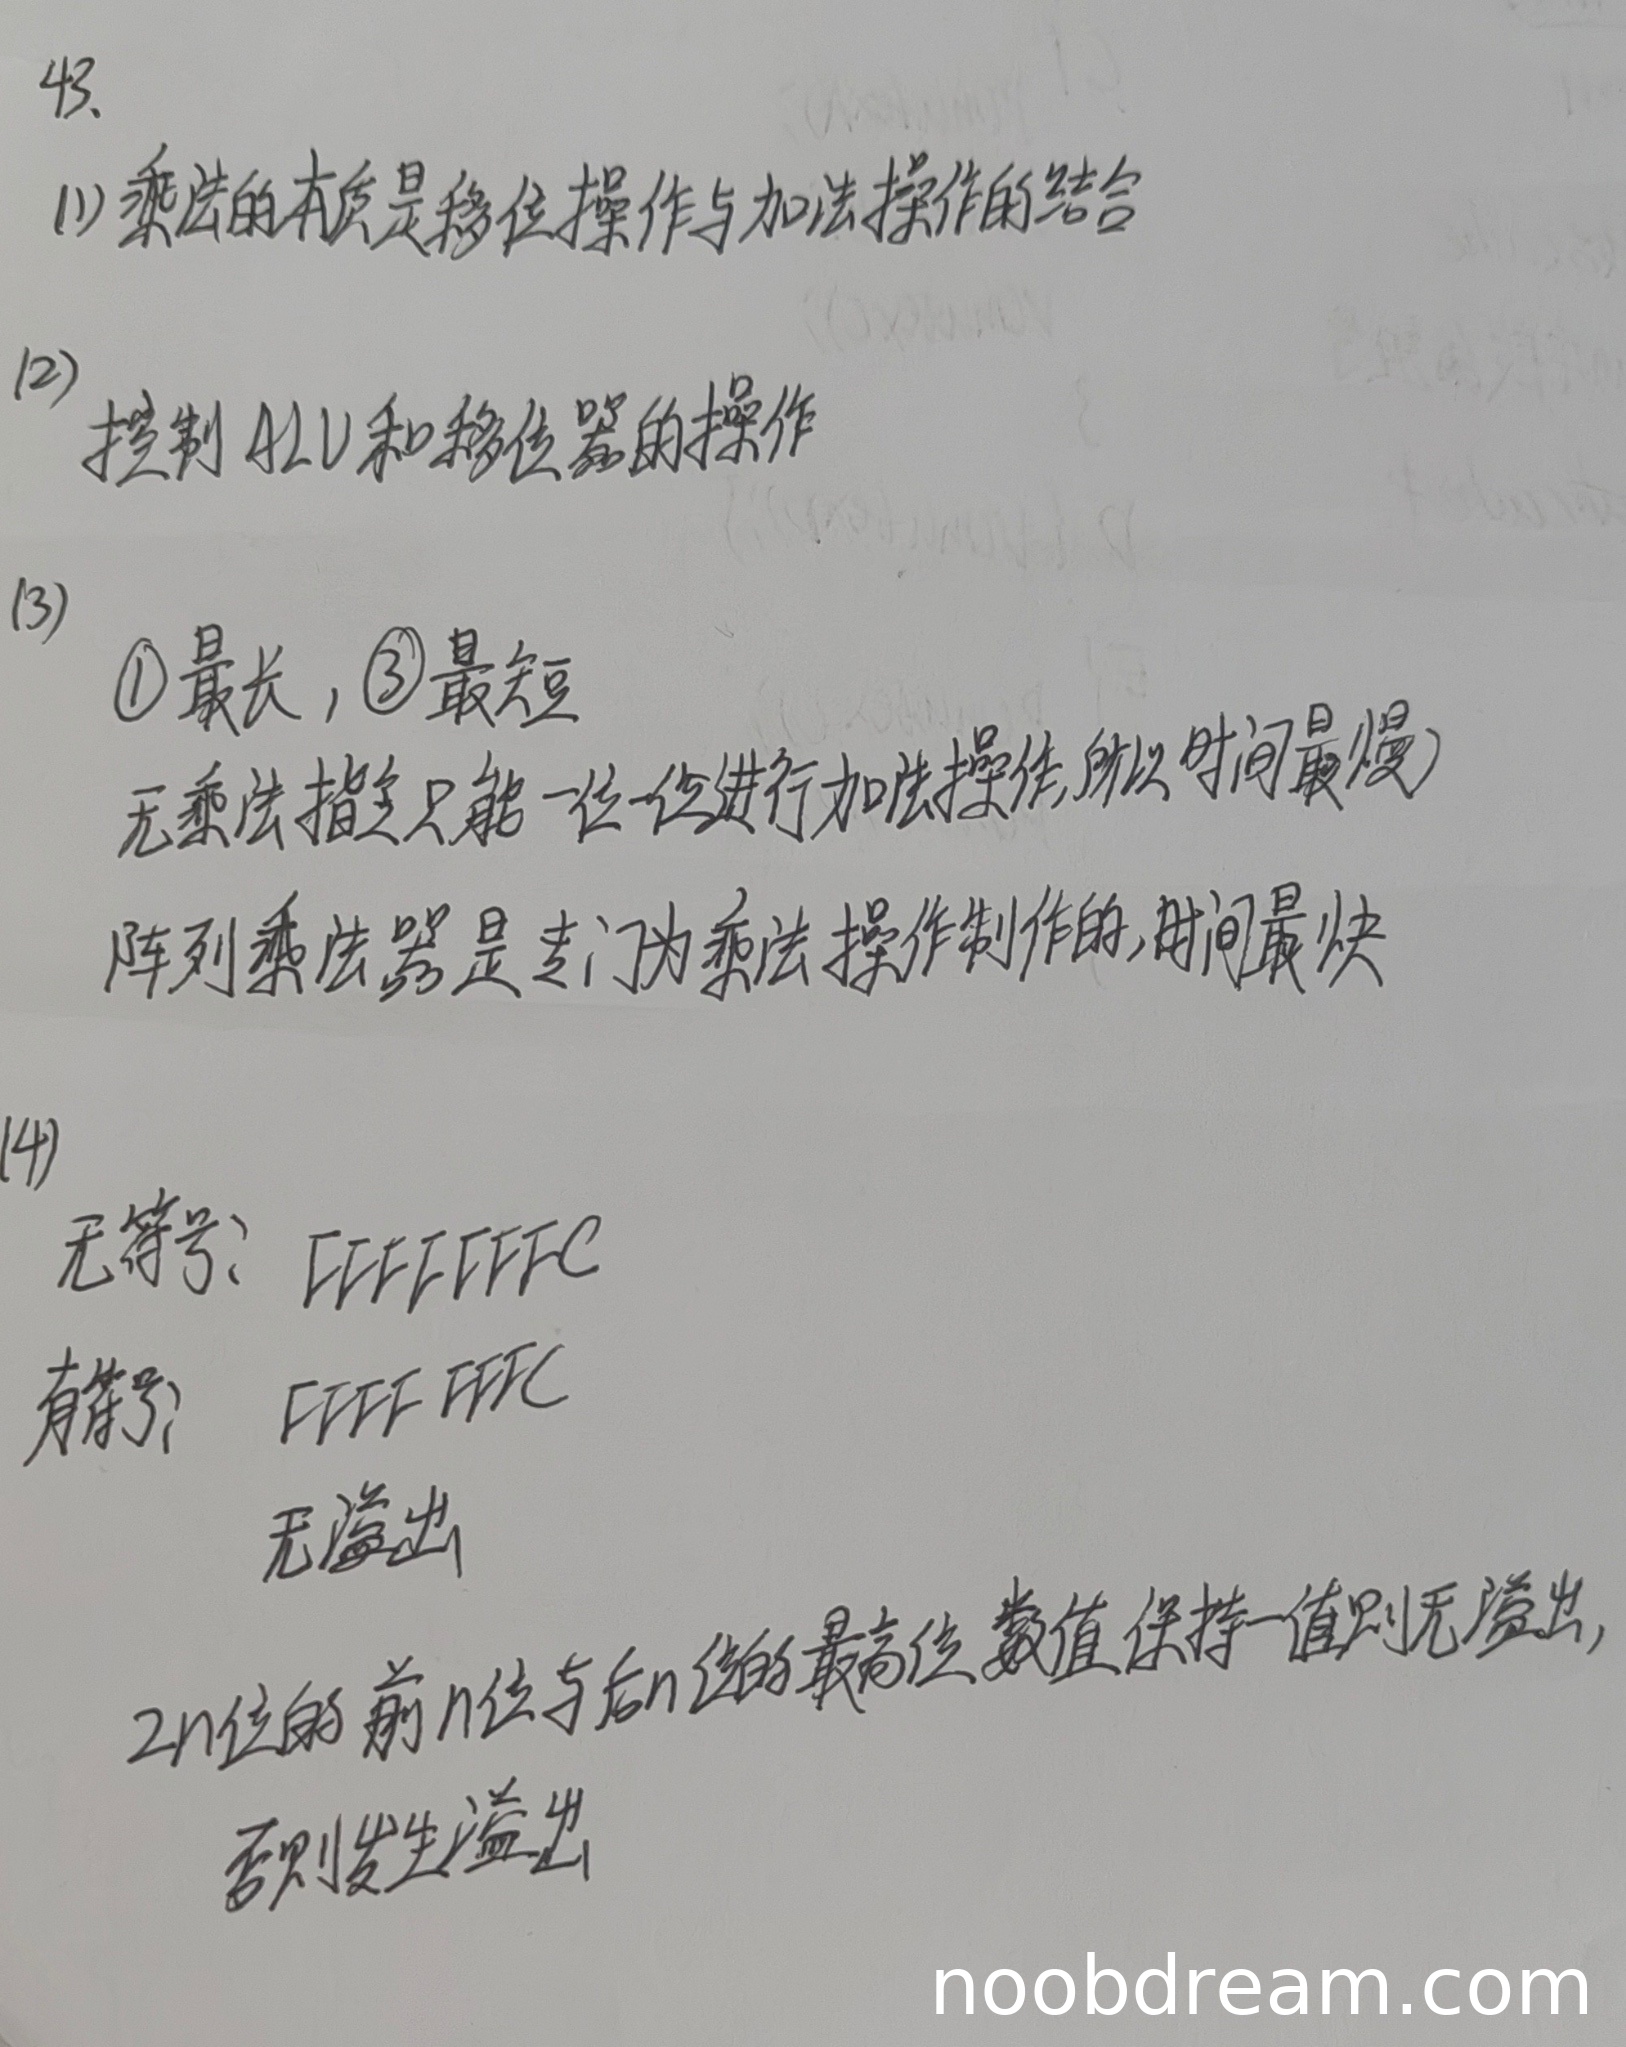 43、
(1) 乘法的本质是移位操作与加法操作的结合
(2)
控制ALU和移位器的操作
(3)
①最长，③最短
无乘法指令只能一位一位进行加法操作，所以时间最慢
阵列乘法器是专门为乘法操作制作的，时间最快
(4)
无符号： FFFFFFFC
有符号： FFFF FFFC
无溢出
2n位的前n位与后n位的最高位数值保持一值则无溢出，
否则发生溢出
noobdream.com